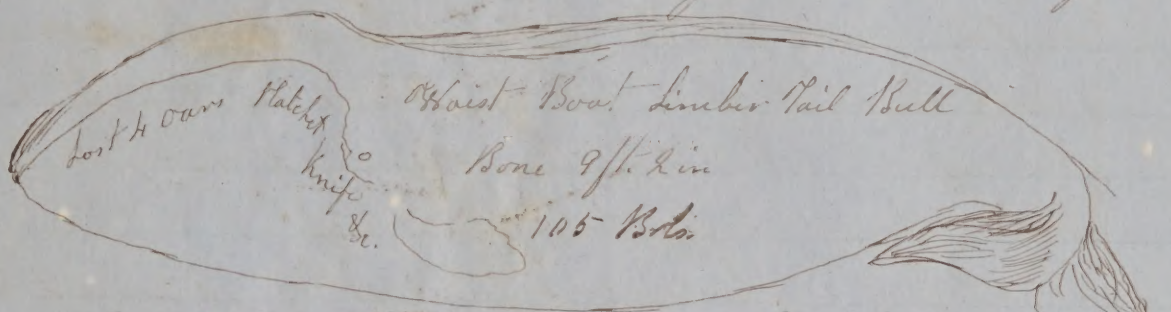 Lost 4 oars Hatchet
Knife
&c.
Waist Boat Limber Tail Bull
Bone 9 ft. 2 in
105 Bbls